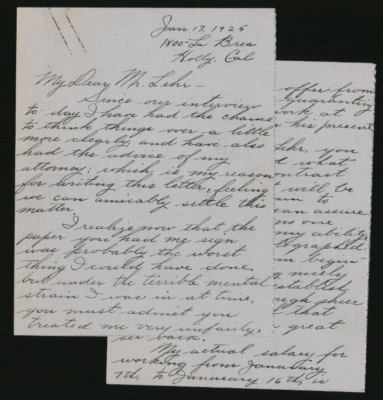 Jan 17, 1925
1800 La Brea
Holly. Cal
My Dear Mr. Lehr -
Since our interview
to day I have had the chance
to think things over a little
more clearly, and have also
had the advice of my
attorney; which is my reason
for writing this letter, feeling
we can amicably settle this
matter.
I realize now that the
paper you had me sign
was probably the worst
thing I could have done,
but under the terrible mental
strain I was in at time,
you must admit you
treated me very unfairly.
offer from
guaranty
work at
his present
Lehr, you
what
contract
will be
to
can assure
no one
my ability,
tographed
begun-
nicely
established
ough sheer
that
great
set back.
My actual salary for
working from Januaray
7th, to Januaray 16th, is